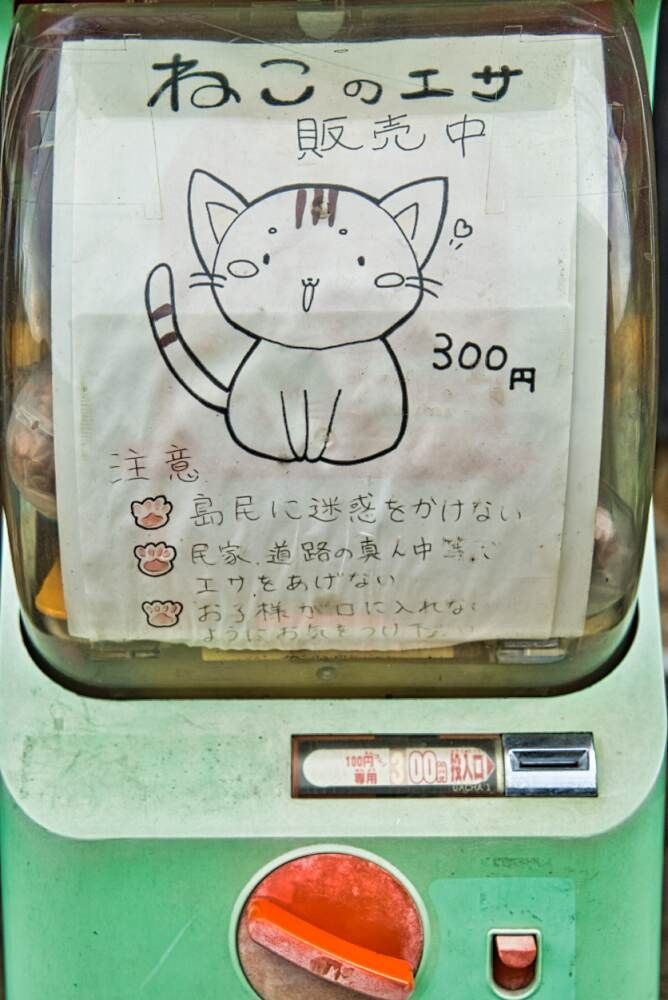 ねこのエサ
販売中
300円
注意
島民に迷惑をかけない
民家、道路の真ん中等で
エサをあげない
お子様が口に入れない
ようにお気をつけ下さい
100円
専用
300円
投入口
GACHA 1